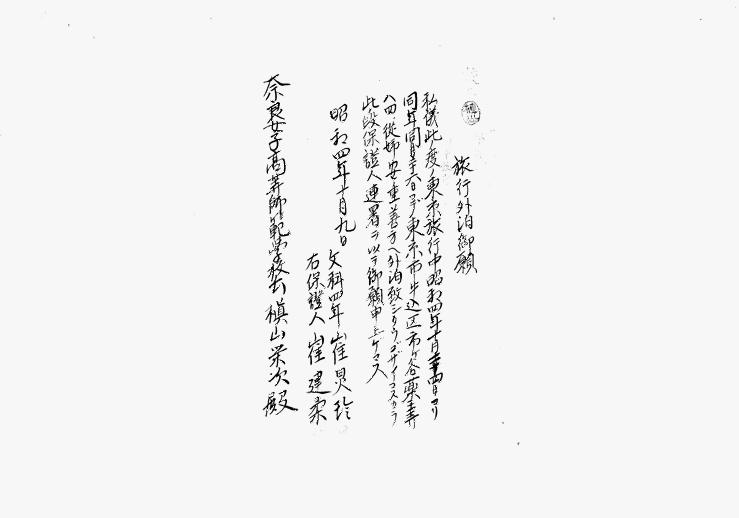 旅行外泊御願
私儀此度ノ東京旅行中昭和四年十月二十四日ヨリ
同年同月二十六日マデ東京市牛込区市ヶ谷薬王寺
八四、従姉安重善方ヘ外泊致シタウゴザイマスカラ
此段保證人連署ヲ以テ御願申上ゲマス
昭和四年十月九日
文科四年 崔炅玲
右保證人 崔建
奈良女子高等師範学校長槇山栄次殿